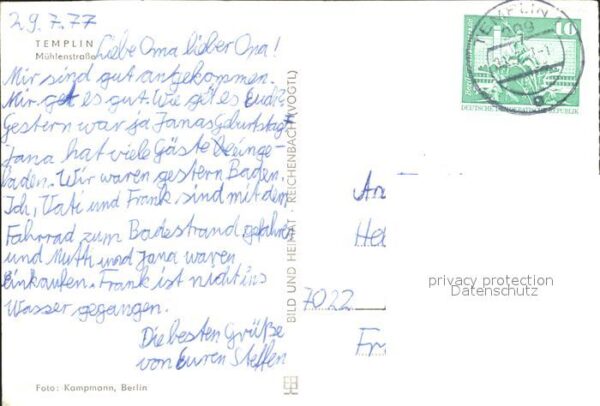 29.7.77
TEMPLIN
Mühlenstraße
Liebe Oma lieber Opa!
Mir sind gut angekommen.
Mir get es gut. Wie get es Euch?
Gestern war ja Janas Geburtstag.
Jana hat viele Gäste einge-
baden. Wir waren gestern Baden.
Ich, Vati und Frank sind mit dem
Fahrrad zum Badestrand gefahren
und Mutti und Jana waren
einkaufen. Frank ist nicht ins
Wasser gegangen.
Die besten Grüße
von Euren Steffen
Foto: Kampmann, Berlin
BILD UND HEIMAT · REICHENBACH (VOGTL)
TEMPLIN
209
10
DEUTSCHE DEMOKRATISCHE REPUBLIK
An
He
7022
Fr
privacy protection
Datenschutz